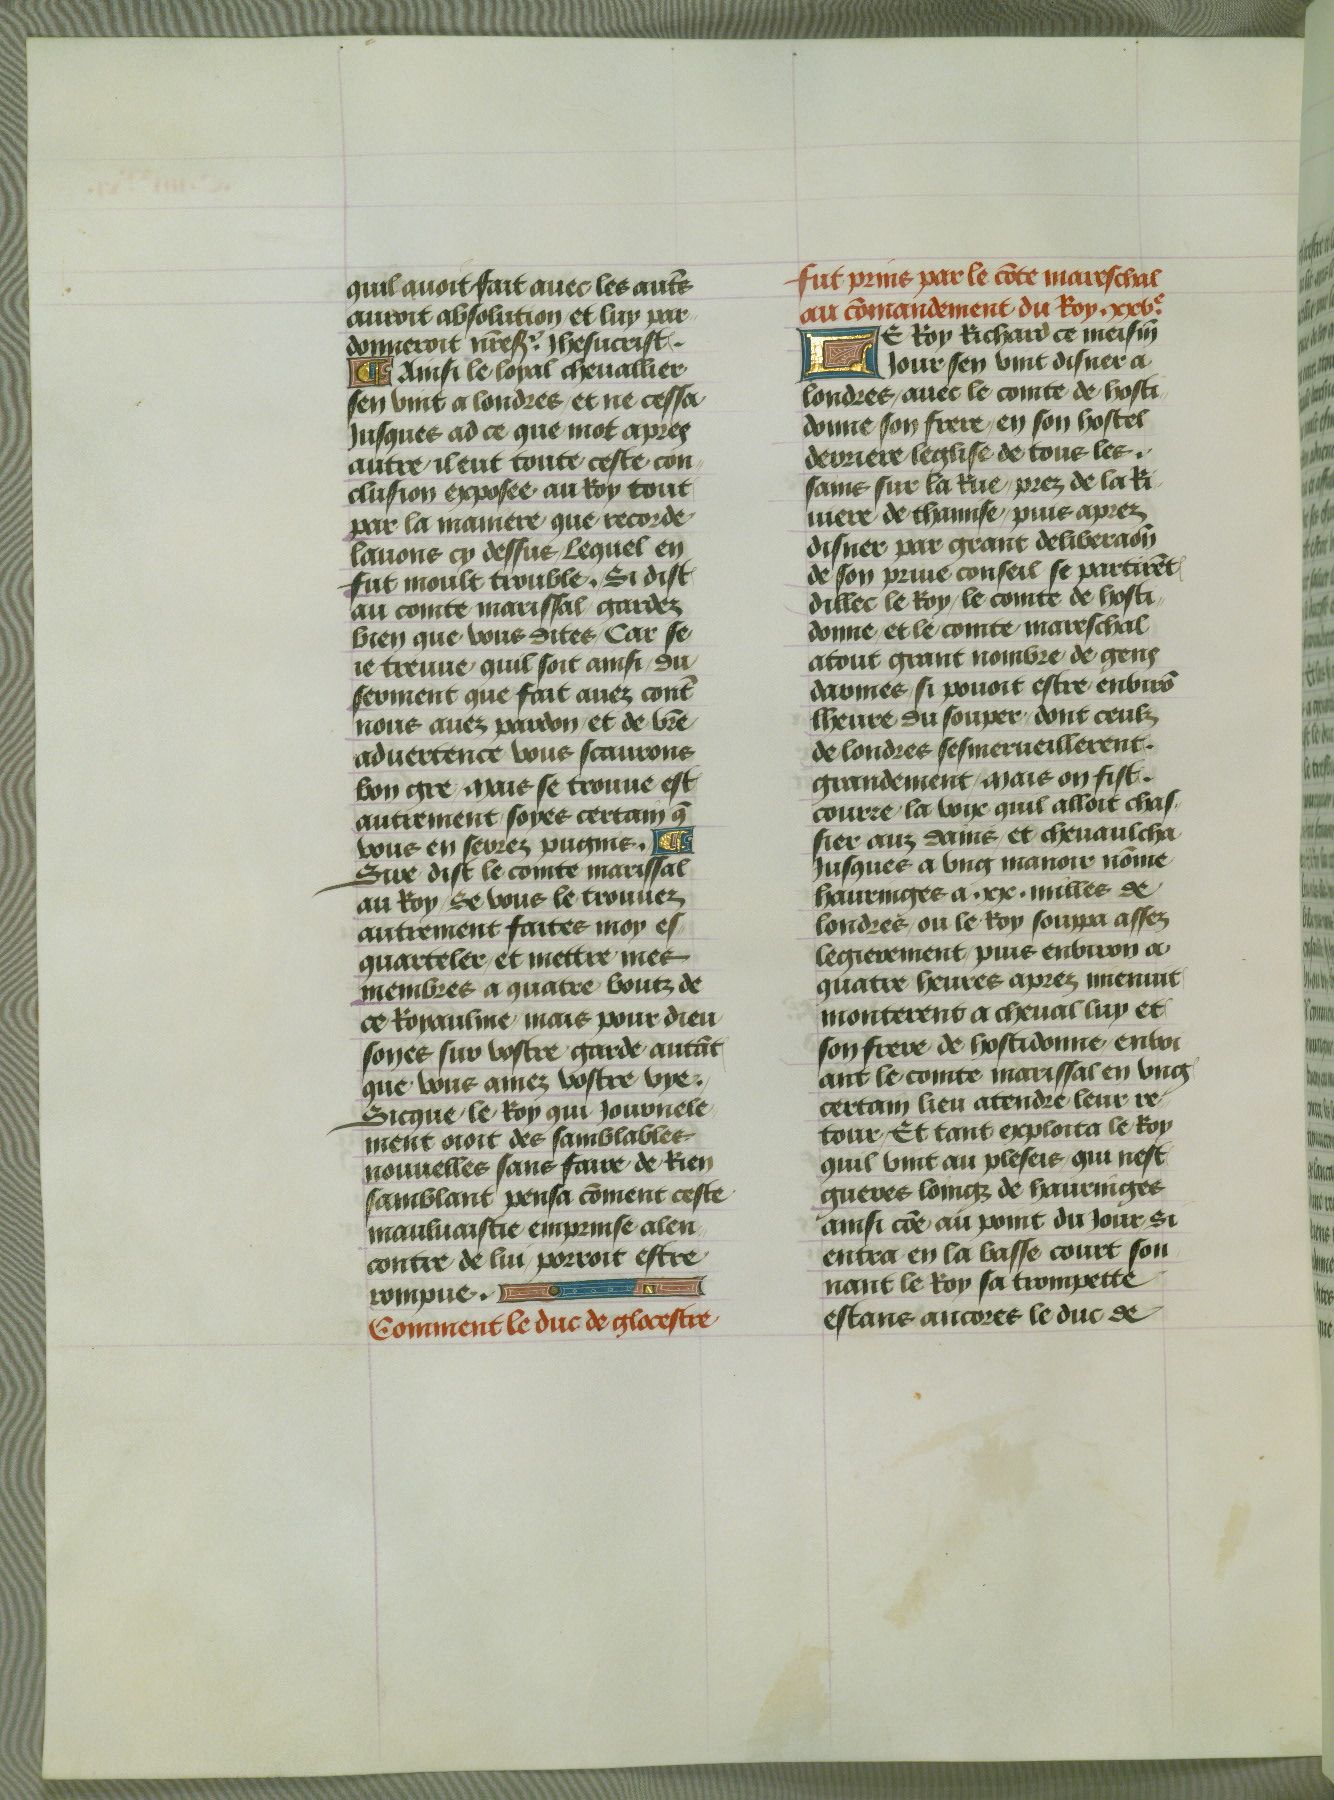 quil auoit fait auec les autr̄s
auroit absolution et luy par
donneroit nr̄e sr̄. Jhesucrist.
Ainsi le loyal cheuallier
sen vint a londres / et ne cessa
Jusques ad ce que mot apres
autre il eut toute ceste con
clusion exposee au Roy tout
par la maniere que recorde
lauons cy dessus Lequel en
fut moult trouble. Si dist
au comte marissal gardez
bien que vous dites / Car se
ie treuue quil soit ainsi / Du
serment que fait auez contr̄
nous auez pardon / et de vr̄e
aduertence vous scaurons
bon gre / Mais se trouue est
autrement / soyes certain q̄
vous en serez pugnis.
Sire dist le comte marissal
au Roy / Se vous le trouuez
autrement faites moy es
quarteler / et mettre mes
membres a quatre boutz de
ce Royaulme / mais pour dieu
soyes sur vostre garde autāt
que vous amez vostre vye.
Sicque le Roy qui Journele
ment oioit des samblables
nouuelles sans faire de Rien
samblant pensa cōment ceste
mauluaistie emprinse alen
contre de lui porroit estre
rompue.
Comment le duc de glocestre
fut prins par le cōte mareschal
au cōmandement du Roy. xxvͤ.
LE Roy Richard ce meism̄
Jour sen vint disner a
londres / auec le comte de hosti
donne son frere / en son hostel
derriere leglise de tous les.
sains sur la Rue / prez de la Ri
uiere de thamise / puis aprez
disner par grant deliberaōn
de son priue conseil se partirēt
dillec le Roy / le comte de hosti
donne / et le comte mareschal
atout grant nombre de gens
darmes / si pouoit estre enuirō
lheure du souper / dont ceulz
de londres sesmerueillerent.
grandement / Mais on fist.
courre la voix quil alloit chas
sier auz dains / et cheuaulcha
Jusques a vng manoir nōme
haueringes a .xx. milles de
londres / ou le Roy souppa assez
legierement / puis enuiron a
quatre heures aprez mienuit
monterent a cheual luy et
son frere de hostidonne / enuoi
ant le comte marissal en vng
certain lieu atendre leur re
tour / Et tant exploita le Roy
quil vint au pleseis / qui nest
gueres loingz de haueringes
ainsi cōe au point du Jour / Si
entra en la basse court son
nant le Roy sa trompette
estans ancores le duc de